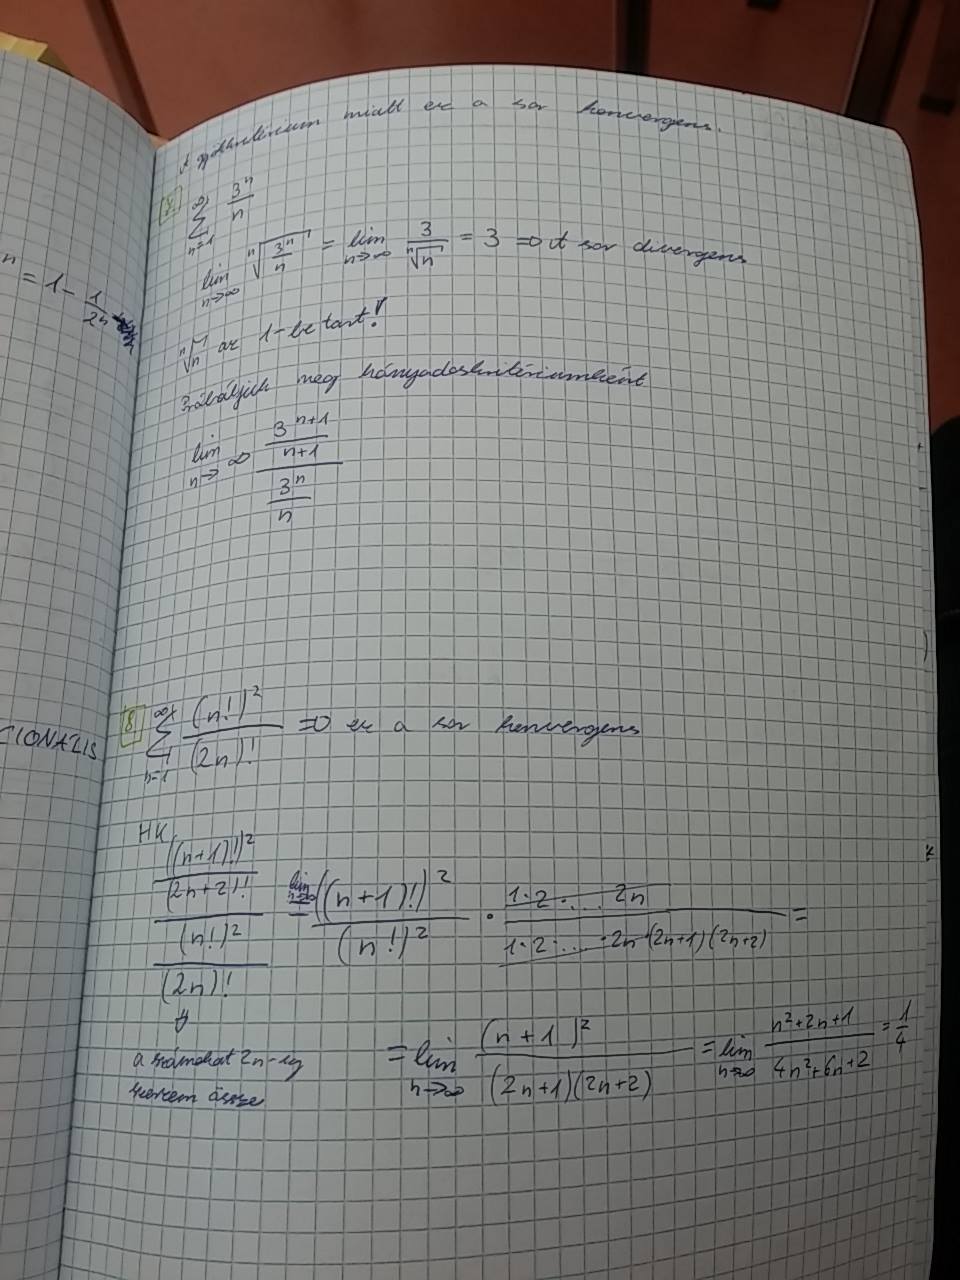 miatt ez a sor konvergens.
7. ∑_{n=1}^{∞} 3^n/n
lim_{n→∞} ⁿ√(3^n/n) = lim_{n→∞} 3/ⁿ√n = 3 ⇒ A sor divergens
ⁿ√n az 1-be tart!
Próbáljuk meg hányadoskritériumként
lim_{n→∞} (3^{n+1}/(n+1))/(3^n/n)
n = 1 - 1/2n
CIONÁLIS
8. ∑_{n=1}^{∞} (n!)²/(2n)! ⇒ ez a sor konvergens
HK
(((n+1)!)²/(2n+2)!)/((n!)²/(2n)!) = lim_{n→∞} ((n+1)!)²/(n!)² · (1·2·...·2n)/(1·2·...·2n·(2n+1)(2n+2)) =
a számokat 2n-ig
szorzom össze
= lim_{n→∞} (n+1)²/((2n+1)(2n+2)) = lim_{n→∞} (n²+2n+1)/(4n²+6n+2) = 1/4